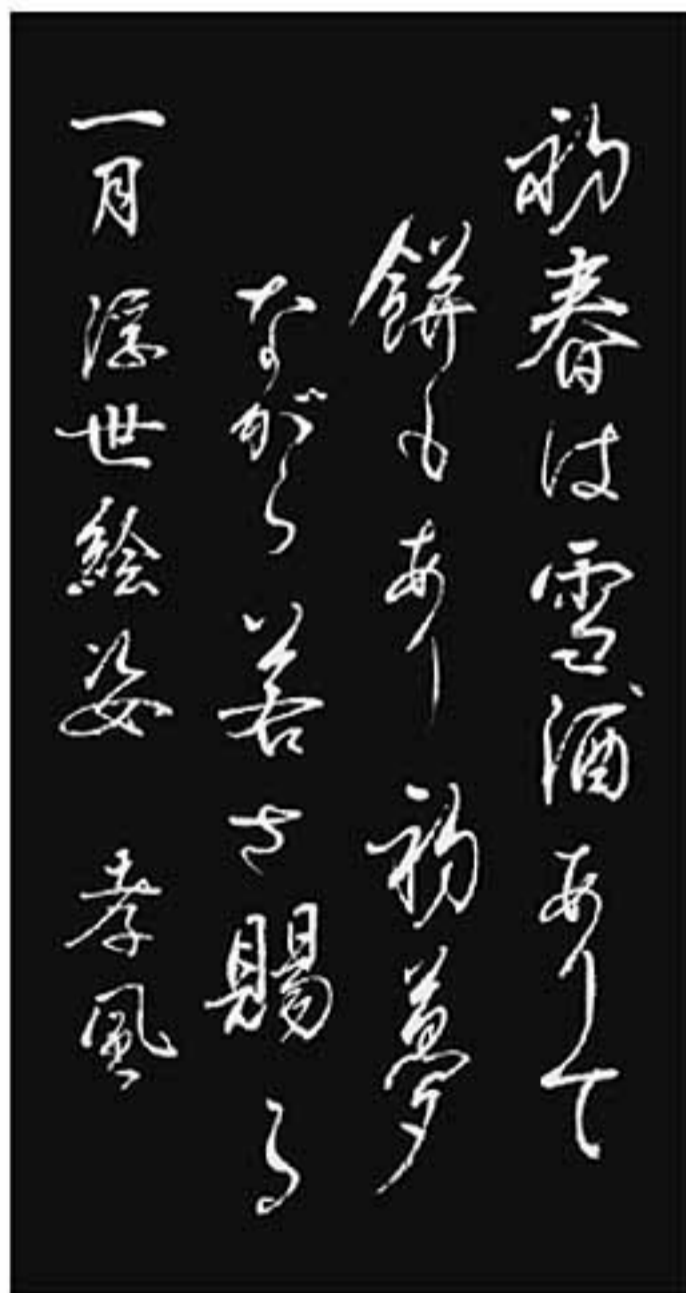 初春は雪酒ありて
餅もあり初夢
ながら若さ賜る
一月浮世絵姿 孝風